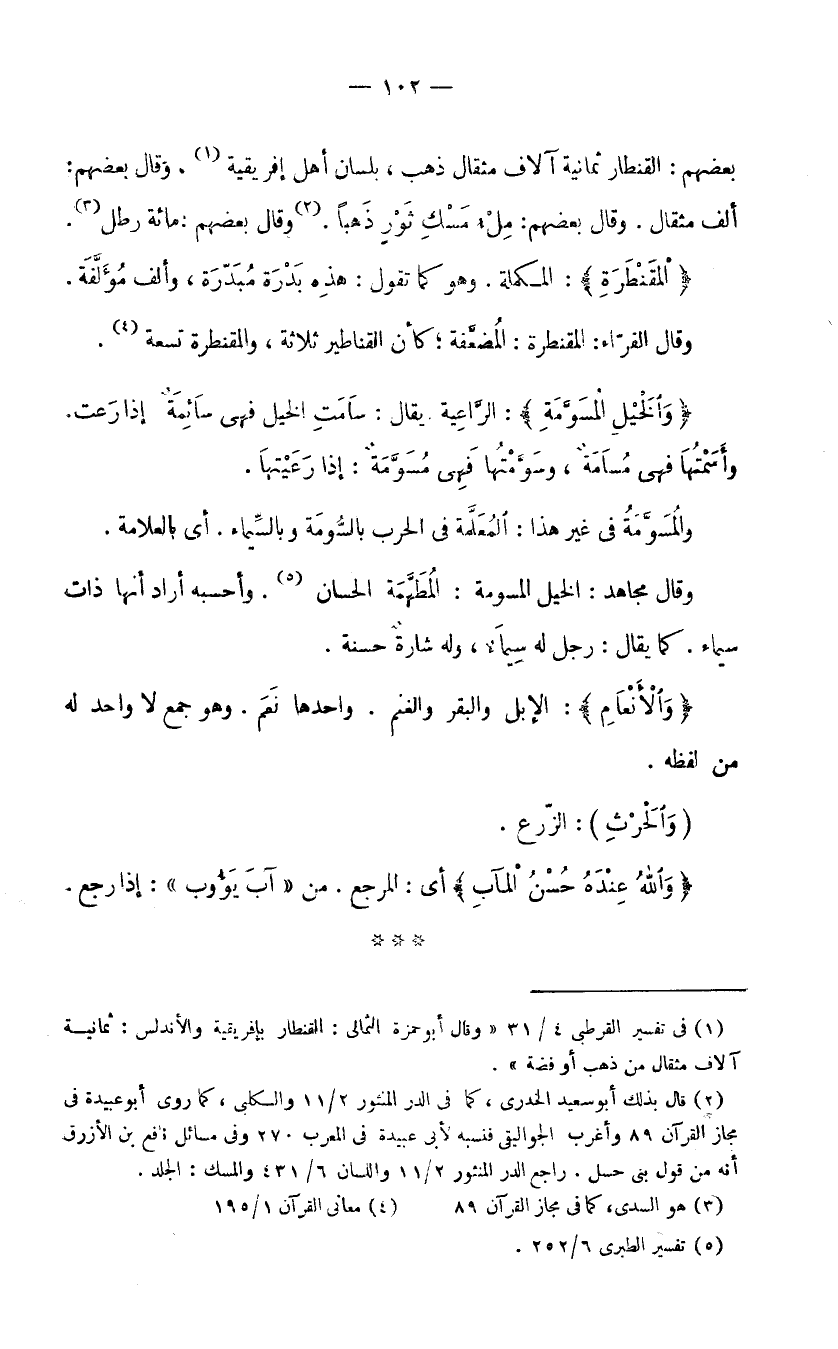 — ١٠٢ —
بعضهم : القنطار ثمانية آلاف مثقال ذهب ، بلسان أهل إفريقية (١) . وَقال بعضهم:
ألف مثقال . وقال بعضهم: مِلْء مَسْكِ ثَوْرٍ ذَهباً .(٢) وقال بعضهم :مائة رطل(٣).
﴿ ٱلْمَقَنْطَرَةِ ﴾ : المكملة . وهو كما تقول : هذه بَدْرَة مُبَدّرَة ، وألف مُؤَلَّفَة .
وقال الفرّاء: المقنطرة : المُضعَّفة ؛ كأن القناطير ثلاثة ، والمقنطرة تسعة (٤) .
﴿ وَٱلْخَيْلِ الْمُسَوَّمَةِ ﴾ : الرَّاعية . يقال : سَامَتِ الخيل فهى سَائِمَةٌ إذا رَعت.
وأَسَمْتُهَا فهى مُسَامَةٌ ، وسَوَّمْتُها فَهِى مُسَوَّمَةٌ : إذا رَعَيْتِهَا .
والمُسَوَّمَةُ فى غير هذا : ٱلمُعَلَّمة فى الحرب بالسُّومَة وبالسِّيماء . أى بالعلامة .
وقال مجاهد : الخيل المسومة : المُطَهَّمَة الحسان (٥) . وأحسبه أراد أنها ذات
سيماء . كما يقال : رجل له سِيمَاء ، وله شارةٌ حسنة .
﴿ وَٱلْأَنْعَامِ ﴾ : الإبل والبقر والغنم . واحدها نَعَمَ . وهو جمع لا واحد له
من لفظه .
( وَٱلْحَرْثِ ) : الزّرع .
﴿ وَٱللهُ عِنْدَهُ حُسْنُ ٱلْمَآبِ ﴾ أى : المرجع . من « آبَ يَؤُوب » : إذا رجع .
* * *
(١) فى تفسير القرطبى ٤ / ٣١ « وقال أبو حمزة الثمالى : القنطار بإفريقية والأندلس : ثمانيـة
آلاف مثقال من ذهب أو فضة » .
(٢) قال بذلك أبو سعيد الخدرى ، كما فى الدر المنثور ١١/٢ والكلبى ، كما روى أبو عبيدة فى
مجاز القرآن ٨٩ وأغرب الجواليقى فنسبه لأبى عبيدة فى المعرب ٢٧٠ وفى مسائل نافع بن الأزرق
أنه من قول بنى حسل . راجع الدر المنثور ١١/٢ واللسان ٤٣١/٦ والمسك : الجلد .
(٣) هو السدى، كما فى مجاز القرآن ٨٩ (٤) معانى القرآن ١٩٥/١
(٥) تفسير الطبرى ٢٥٢/٦ .